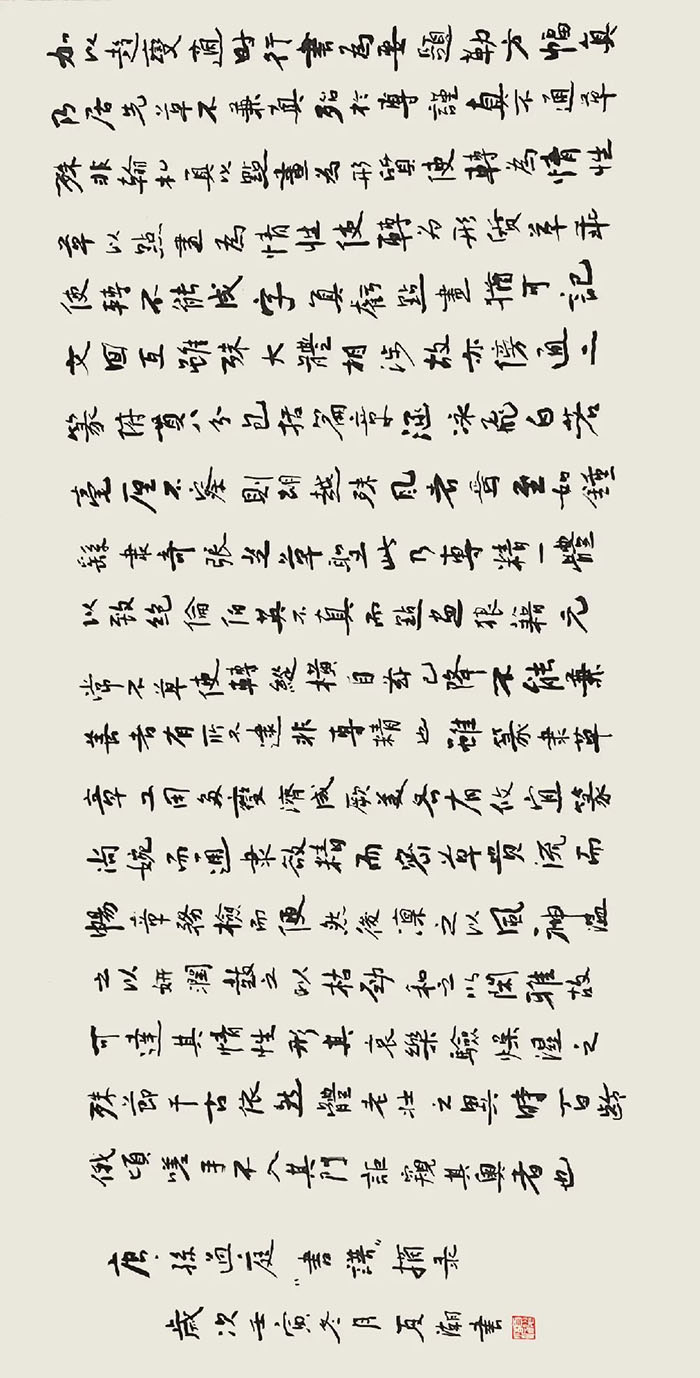 加以趍變適時行書為要題勒方幅真
乃居先草不兼真殆於專謹真不通草
殊非翰札真以點畫為形質使轉為情性
草以點畫為情性使轉為形質草乖
使轉不能成字真虧點畫猶可記
文回互雖殊大體相涉故亦傍通二
篆俯貫八分包括篇章涵泳飛白若
毫厘不察則胡越殊風者焉至如鍾
繇隸奇張芝草聖此乃專精一體
以致絕倫伯英不真而點畫狼籍元
常不草使轉縱橫自茲已降不能兼
善者有所不逮非專精也雖篆隸草
章工用多變濟成厥美各有攸宜篆
尚婉而通隸欲精而密草貴流而
暢章務檢而便然後凜之以風神溫
之以妍潤鼓之以枯勁和之以閑雅故
可達其情性形其哀樂驗燥濕之
殊節千古依然體老壯之異時百齡
俄頃嗟乎不入其門詎窺其奧者也
唐·孫過庭"書譜"摘录
歲次壬寅冬月 書